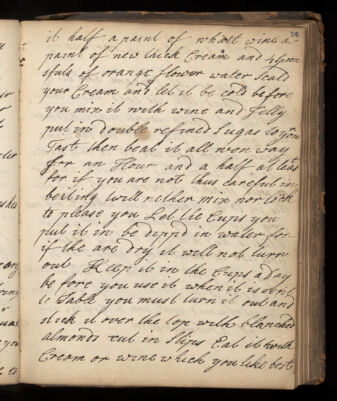 it half a paint of whitt wine a
paint of new milch Cream and 4 spoon
sfuls of orange flower water scald
your Cream and let it be cold before
you mix it with wine and Jelly
put in double refined Sugar to your
Tast then beat it all won way
for an Hour and a half at least
for if you are not thus careful in
beiting twill nether mix nor look
to please you Let tie Cups you
put it in be dippd in water for
if the are dry it will not turn
out Keep it in the Cups a day
be fore you use it when it is
to Table you must turn it out and
stick it over the top with blanched
almonds cut in slips Eat it with
Cream or wine which you like best